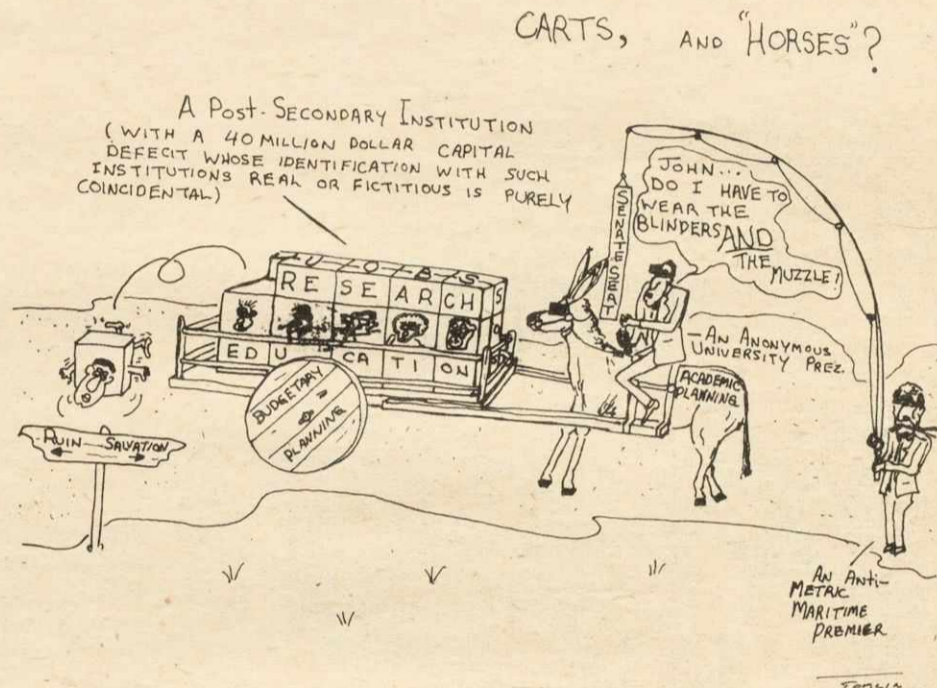 CARTS, AND "HORSES"?
A POST-SECONDARY INSTITUTION
(WITH A 40 MILLION DOLLAR CAPITAL
DEFECIT WHOSE IDENTIFICATION WITH SUCH
INSTITUTIONS REAL OR FICTITIOUS IS PURELY
COINCIDENTAL)
JOHN...
DO I HAVE TO
WEAR THE
BLINDERS AND
THE
MUZZLE!
SENATE SEAT
- AN ANONYMOUS
UNIVERSITY PREZ.
JOBS
RESEARCH
EDUCATION
BUDGETARY
PLANNING
ACADEMIC
PLANNING
RUIN SALVATION
AN ANTI-
METRIC
MARITIME
PREMIER